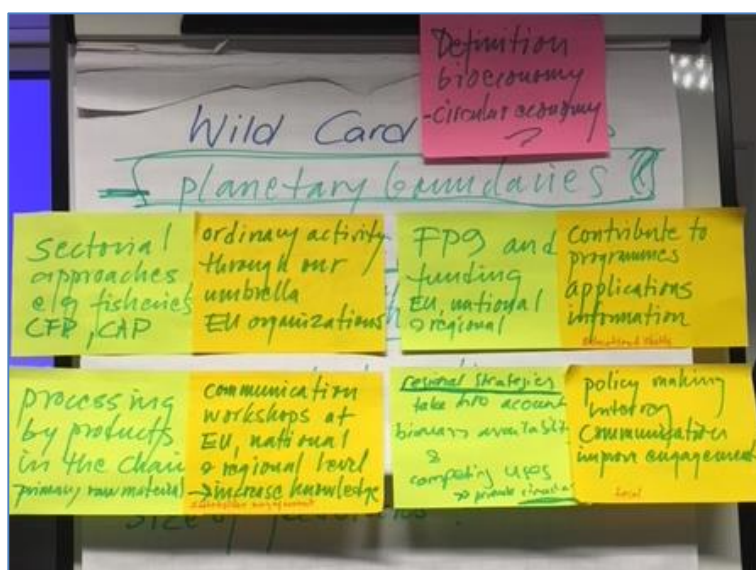 Definition
bioeconomy
-circular economy
Wild Card
planetary boundaries
sectorial
approaches
e.g. fisheries
CFP, CAP
ordinary activity
through our
umbrella
EU organizations
FP9 and
funding
EU, national
& regional
Contribute to
programmes
applications
information
processing
by products
in the chain
primary raw material
communication
workshops at
EU, national
& regional level
→ increase knowledge
regional strategies
take into account
biomass availability
&
competing uses
→ private
policy making
communication
improve engagement
local
size of